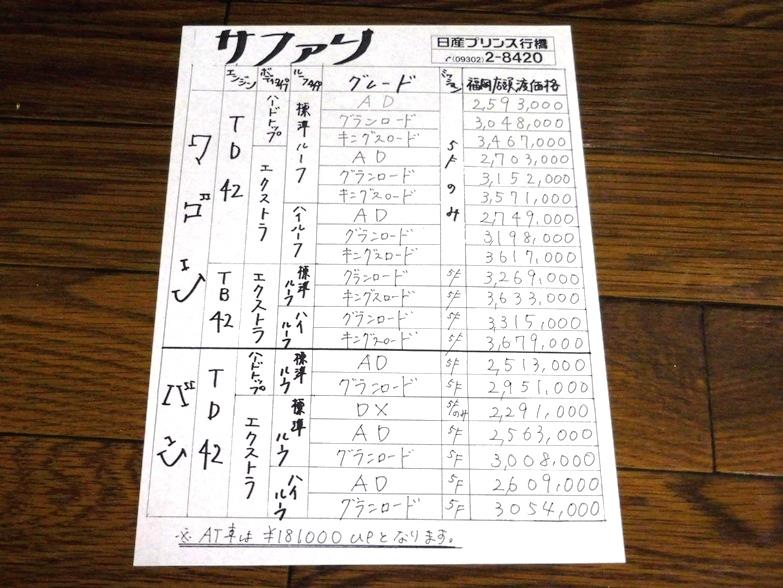 サファリ
日産プリンス行橋
(09302)2-8420
エンジン ボディタイプ ルーフタイプ グレード ミッション 福岡店頭渡価格
ワゴン TD42 ハードトップ 標準ルーフ AD 5Fのみ 2,593,000
グランロード 3,048,000
キングスロード 3,467,000
エクストラ AD 2,703,000
グランロード 3,152,000
キングスロード 3,571,000
ハイルーフ AD 2,749,000
グランロード 3,198,000
キングスロード 3,617,000
TB42 エクストラ 標準ルーフ グランロード 5F 3,269,000
キングスロード 5F 3,633,000
ハイルーフ グランロード 5F 3,315,000
キングスロード 5F 3,679,000
バン TD42 ハードトップ 標準ルーフ AD 5F 2,513,000
グランロード 5F 2,951,000
エクストラ 標準ルーフ DX 5Fのみ 2,291,000
AD 5F 2,563,000
グランロード 5F 3,008,000
ハイルーフ AD 5F 2609,000
グランロード 5F 3054,000
※ AT車は ¥181000 upとなります。